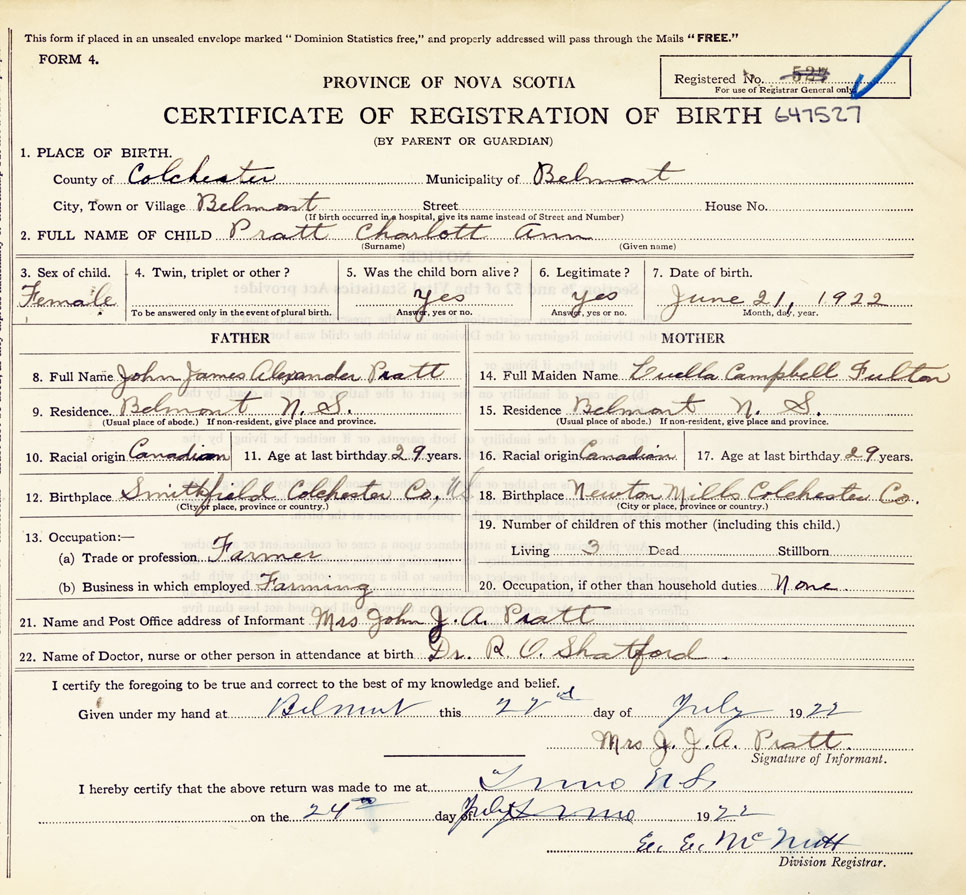 This form if placed in an unsealed envelope marked "Dominion Statistics free," and properly addressed will pass through the Mails "FREE."
FORM 4.
PROVINCE OF NOVA SCOTIA
Registered No. 527
For use of Registrar General only
CERTIFICATE OF REGISTRATION OF BIRTH 647527
(BY PARENT OR GUARDIAN)
1. PLACE OF BIRTH.
County of Colchester Municipality of Belmont
City, Town or Village Belmont Street House No.
(If birth occurred in a hospital, give its name instead of Street and Number)
2. FULL NAME OF CHILD Pratt Charlott Ann
(Surname) (Given name)
3. Sex of child. 4. Twin, triplet or other? 5. Was the child born alive? 6. Legitimate? 7. Date of birth.
Female Yes Yes June 21, 1922
To be answered only in the event of plural birth. Answer, yes or no. Answer, yes or no. Month, day, year.
FATHER MOTHER
8. Full Name John James Alexander Pratt 14. Full Maiden Name Luella Campbell Fulton
9. Residence. Belmont N. S. 15. Residence Belmont N. S.
(Usual place of abode.) If non-resident, give place and province. (Usual place of abode.) If non-resident, give place and province.
10. Racial origin Canadian 11. Age at last birthday 29 years. 16. Racial origin Canadian 17. Age at last birthday 29 years.
12. Birthplace Smithfield Colchester Co, NS 18. Birthplace Newton Mills Colchester Co.
(City or place, province or country.) (City or place, province or country.)
13. Occupation:— 19. Number of children of this mother (including this child.)
(a) Trade or profession Farmer Living 3 Dead Stillborn
(b) Business in which employed Farming 20. Occupation, if other than household duties None
21. Name and Post Office address of Informant Mrs John J. A. Pratt
22. Name of Doctor, nurse or other person in attendance at birth Dr. R. O. Shatford.
I certify the foregoing to be true and correct to the best of my knowledge and belief.
Given under my hand at Belmont this 22nd day of July 1922
Mrs J. J. A. Pratt.
Signature of Informant.
I hereby certify that the above return was made to me at Truro N S,
on the 24th day of July Truro 1922
E. E. McNutt
Division Registrar.